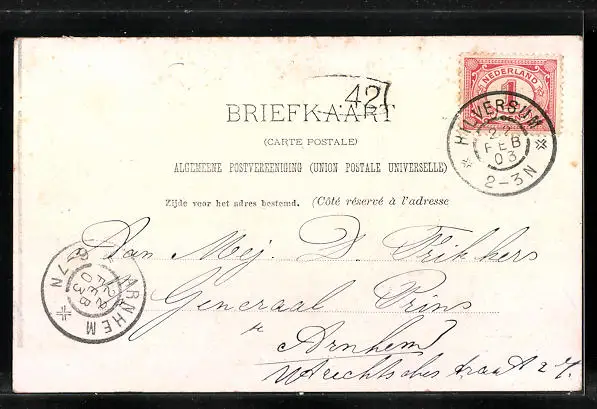 42
NEDERLAND
1
BRIEFKAART
HILVERSUM
22
FEB
03
2-3N
(CARTE POSTALE)
ALGEMEENE POSTVEREENIGING (UNION POSTALE UNIVERSELLE)
Zijde voor het adres bestemd. (Côté réservé à l'adresse
Aan Mej. D. Frikkers
ARNHEM
22
FEB
03
7N
Generaal Prins
Arnhem
Utrechtschestraat